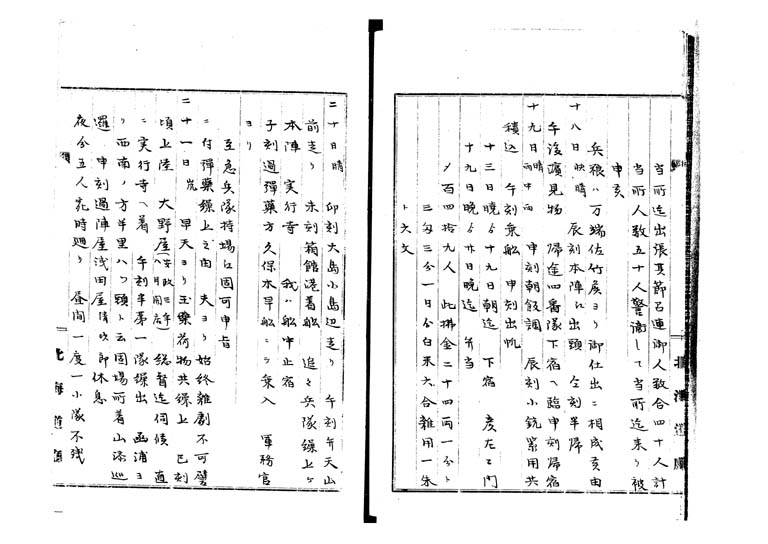 当所迄出張真節召連御人数合四十人計
当所人数五十人警衛して当所迄来り被
申亥
兵粮ハ万端佐竹度ヨリ御仕出ニ相成亥由
十八日 快晴 辰刻本陣江出頭 仝刻半帰
午後瀬見物 帰途四番隊下宿ヘ臨申刻帰宿
十九日 雨中晴 申刻朝飯調 辰刻小銃累用共
積込 午刻乗船 申刻出帆
十三日晩ゟ十九日朝迄 下宿 度左ェ門
十九日晩ゟ廿日晩迄 弁当
〆百四拾九人 此拂金二十四両一分ト
三匁三分一日分白米六合雑用一朱
ト六文
二十日 晴 卯刻大島小島辺走り 午刻弁天山
前走り 未刻箱館港着船 追々兵隊繰上ケ
本陣 実行寺 我ハ船中止宿
子刻過弾薬方久保木早船ニテ乗入 軍務官
ヨリ
至急兵隊持場江固可申旨
ニ付弾薬繰上之由 夫ヨリ始終雑劇不可譬
二十一日 嵐 早天ヨリ玉薬荷物共繰上ケ 巳刻
頃上陸 大野屋 総督迄伺候 直
ニ実行寺ヘ着 午刻半第一隊繰出 函浦ヨ
リ西南ノ方半里ハツ頭ト云固場所着山添巡
邏 申刻過陣屋浅田屋清次郎休息
夜分五人充時廻り 昼間一度一小隊不残
北海道庁